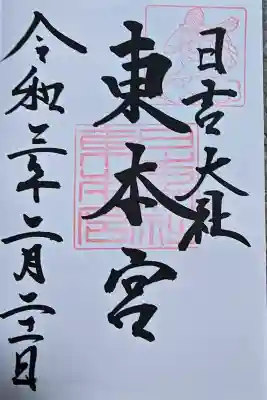 日吉大社
東本宮
令和三年二月二十一日